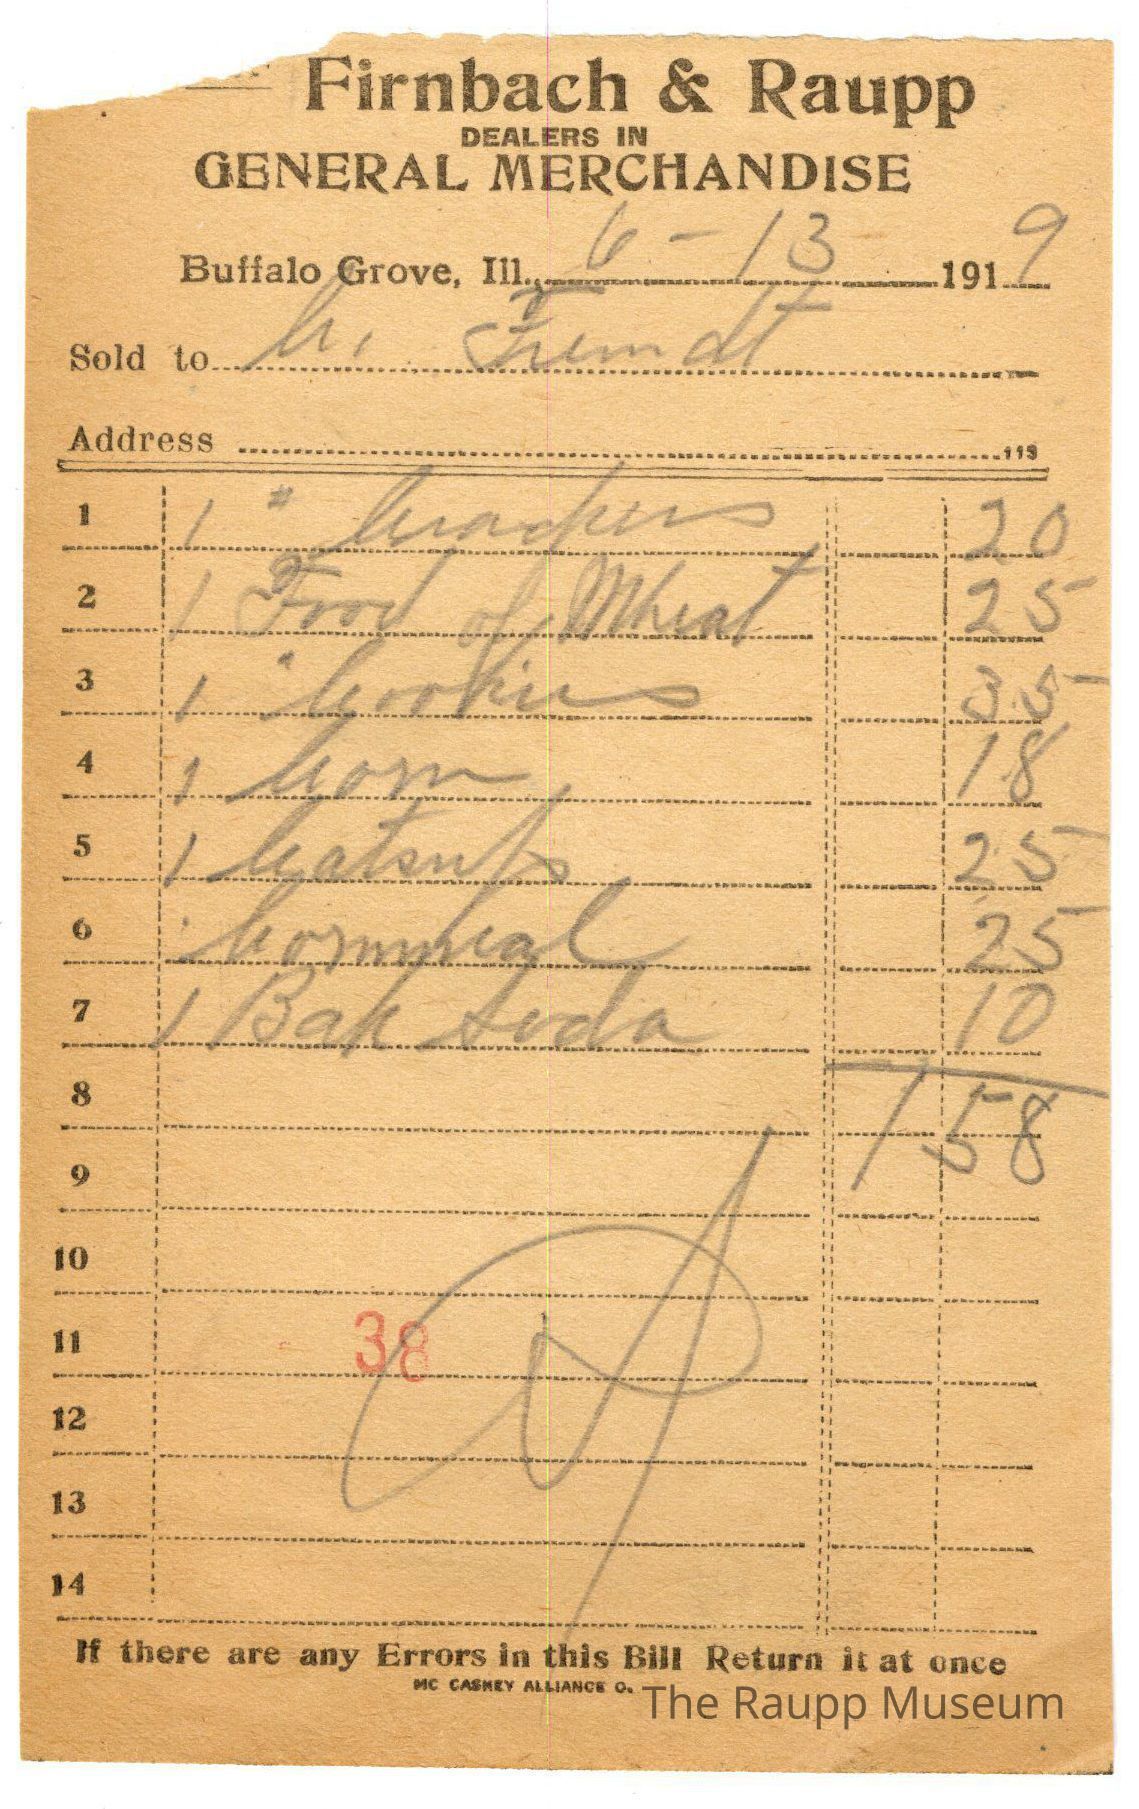 Firnbach & Raupp
DEALERS IN
GENERAL MERCHANDISE
Buffalo Grove, Ill., 6-13 1919
Sold to
Address 113
1 1 # Crackers 20
2 1 Food of Wheat 25
3 1 " Cookies 35
4 1 Corn 18
5 1 Catsup 25
6 Cornmeal 25
7 1 Bak Soda 10
8 1 58
9
10
11 38
12
13
14
If there are any Errors in this Bill Return it at once
MC CASKEY ALLIANCE O.
The Raupp Museum